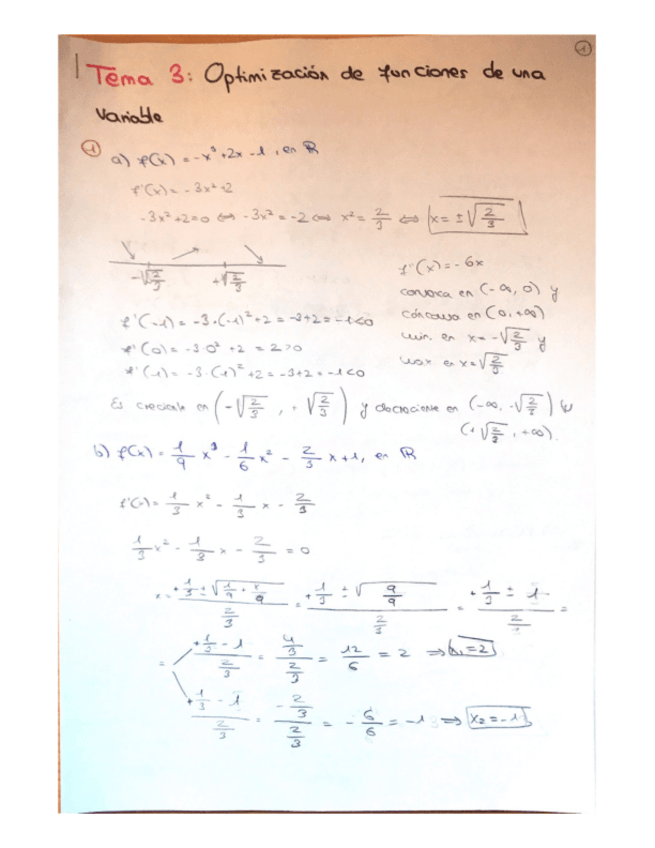 1
Tema 3: Optimización de funciones de una
variable
1 a) f(x) = -x³+2x-1, en ℝ
f'(x) = -3x²+2
-3x²+2=0 ⇔ -3x² = -2 ⇔ x² = 2/3 ⇔ x = ±√(2/3)
-√(2/3) +√(2/3)
f''(x) = -6x
convexa en (-∞, 0) y
cóncava en (0, +∞)
min. en x = -√(2/3) y
max en x = √(2/3)
f'(-1) = -3·(-1)²+2 = -3+2 = -1<0
f'(0) = -3·0²+2 = 2>0
f'(1) = -3·(1)²+2 = -3+2 = -1<0
Es creciente en (-√(2/3), +√(2/3)) y decreciente en (-∞, -√(2/3)) ∪
(+√(2/3), +∞).
b) f(x) = 1/9 x³ - 1/6 x² - 2/3 x+1, en ℝ
f'(x) = 1/3 x² - 1/3 x - 2/3
1/3 x² - 1/3 x - 2/3 = 0
x = (+1/3 ± √(1/9 + 8/9)) / (2/3) = (+1/3 ± √(9/9)) / (2/3) = (+1/3 ± 1) / (2/3) =
= (+1/3 - 1) / (2/3) = (4/3) / (2/3) = 12/6 = 2 ⇒ x₁=2
(+1/3 - 1) / (2/3) = (-2/3) / (2/3) = -6/6 = -1 ⇒ x₂=-1